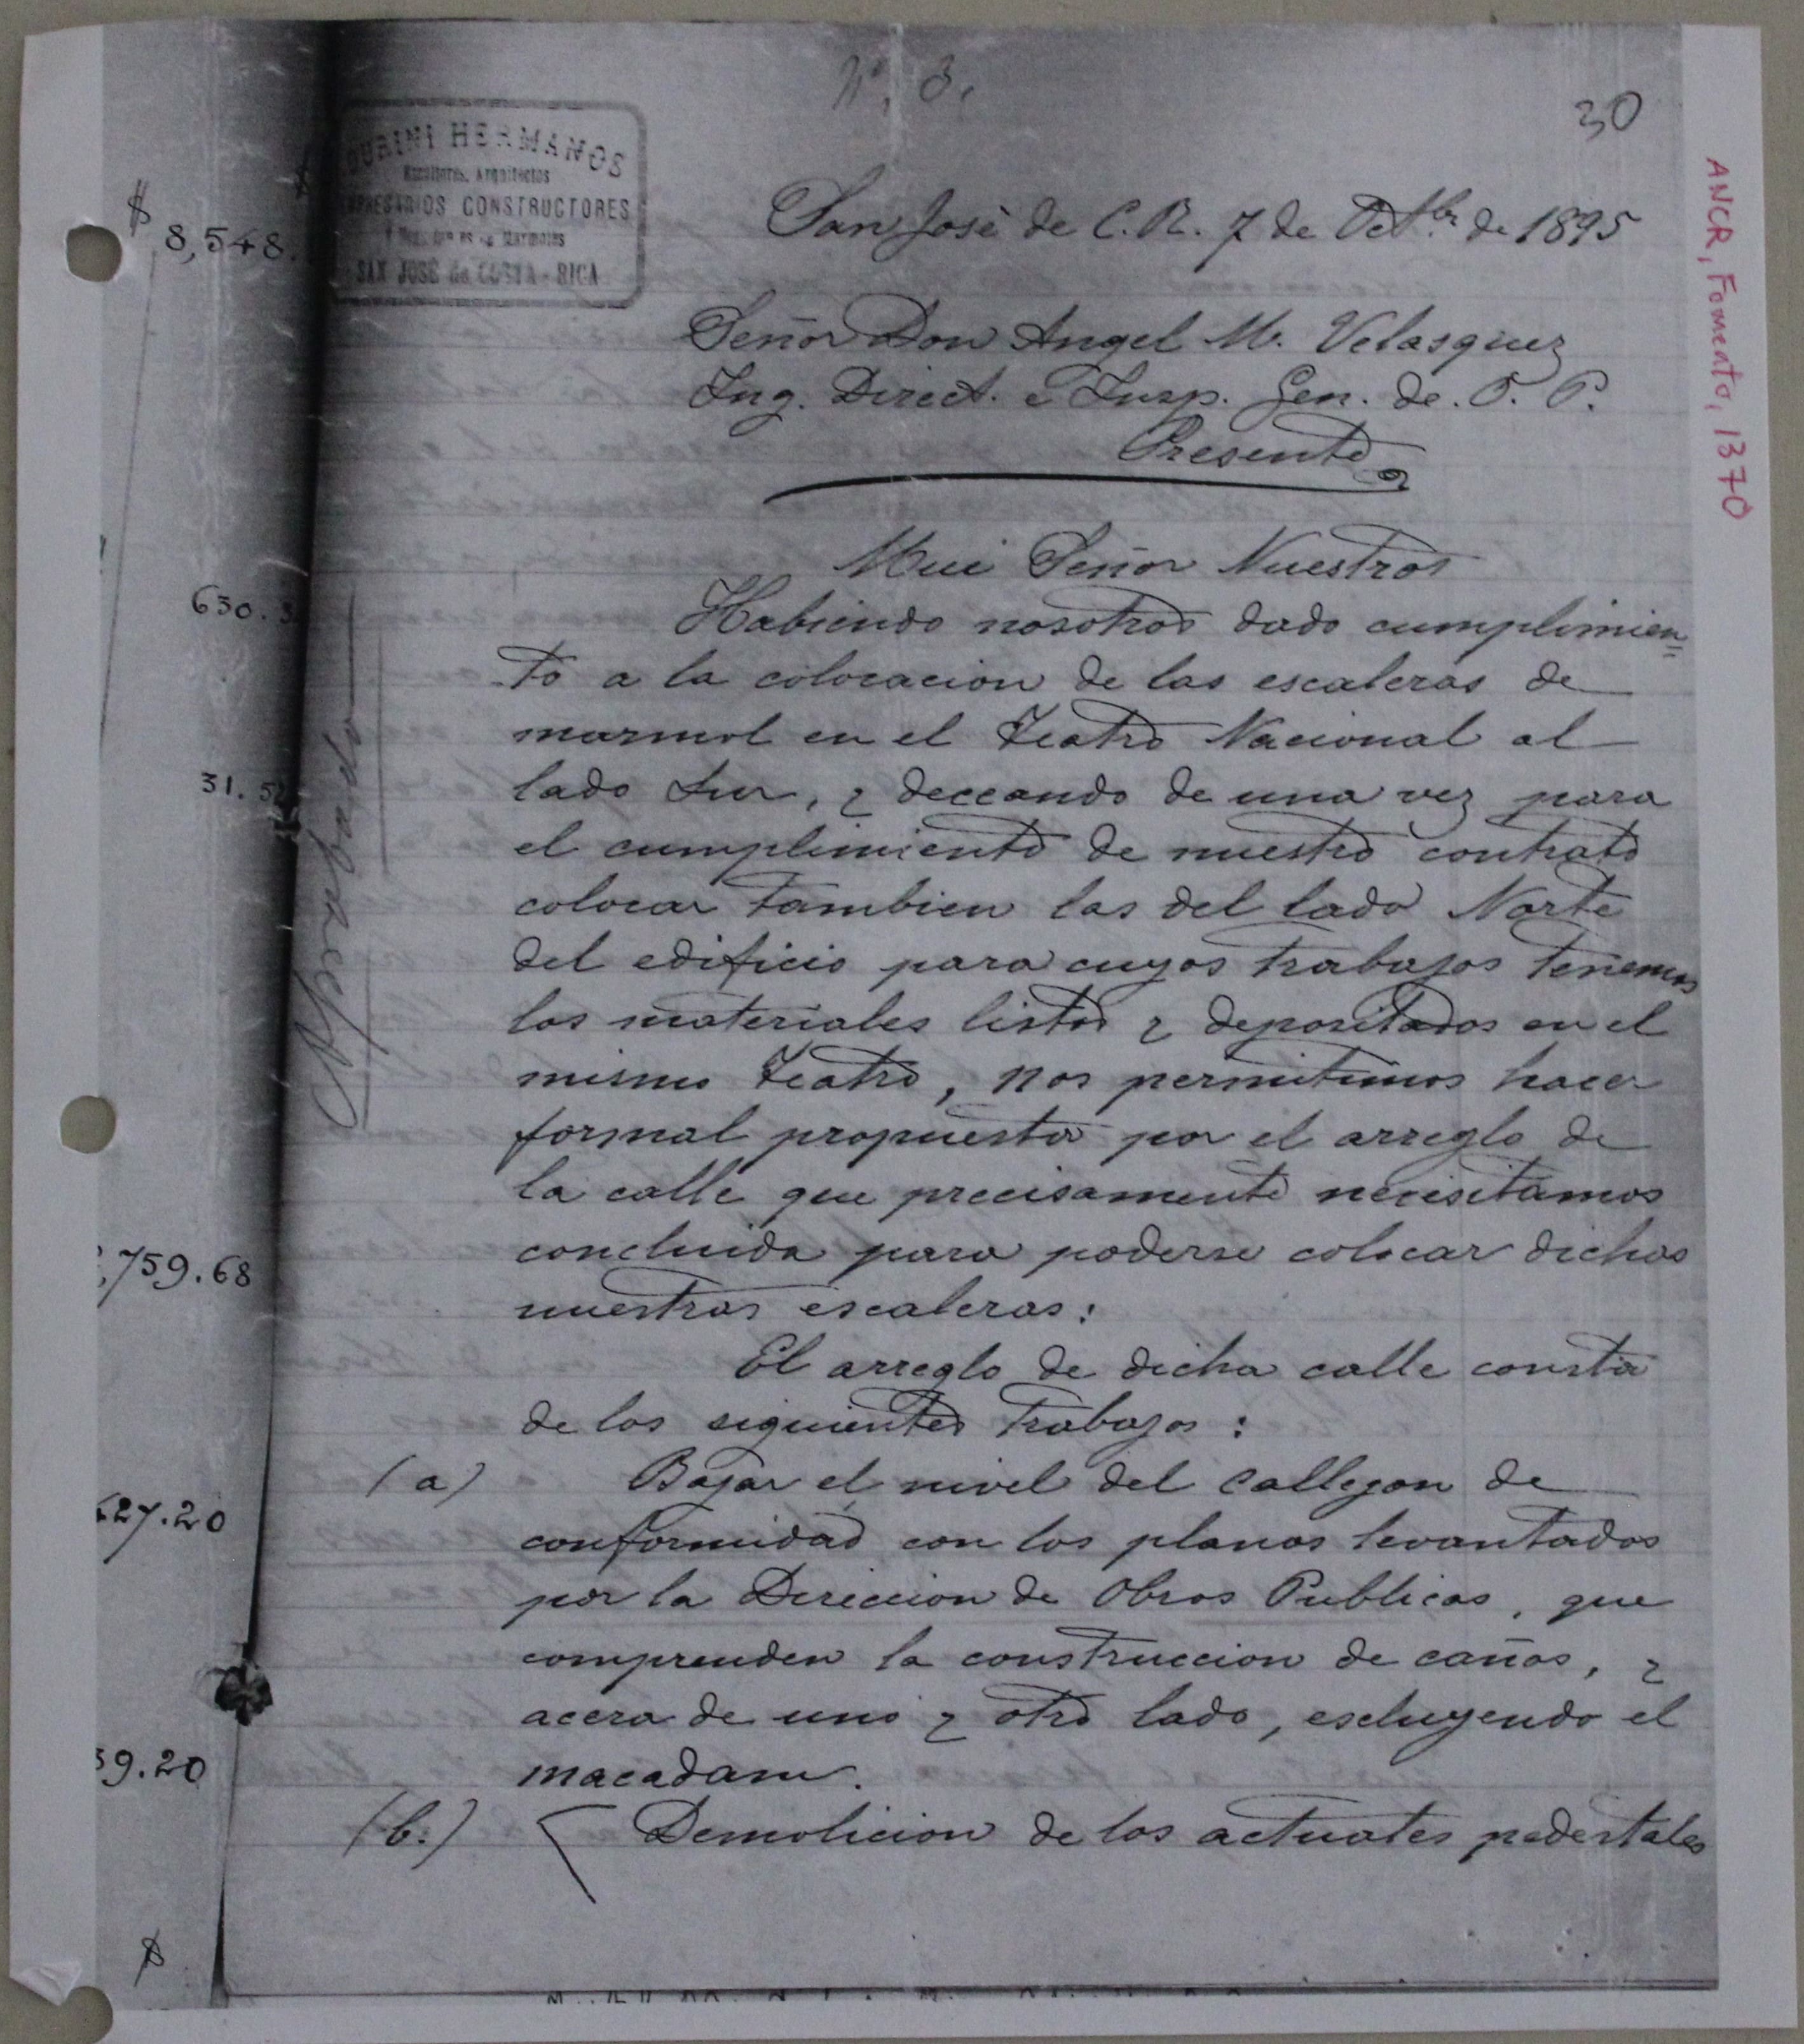 Nº. 3.
30
DURINI HERMANOS
Escultores, Arquitectos
EMPRESARIOS CONSTRUCTORES
SAN JOSÉ de COSTA-RICA
ANCR, Fomento, 1370
San José de C.R. 7 de Octbr. de 1895
Señor Don Angel M. Velasquez
Ing. Direct. e Insp. Gen. de. O. P.
Presente
Mui Señor Nuestros
Habiendo nosotros dado cumplimien=
to a la colocacion de las escaleras de
marmol en el Teatro Nacional al
lado Sur, y deceando de una vez para
el cumplimiento de nuestro contrato
colocar tambien las del lado Norte
del edificio para cuyos trabajos tenemos
los materiales listos y depositados en el
mismo Teatro, nos permitimos hacer
formal propuesta por el arreglo de
la calle que precisamente necisitamos
concluida para poderse colocar dichas
nuestras escaleras:
El arreglo de dicha calle consta
de los siguientes trabajos:
(a) Bajar el nivel del callejon de
conformidad con los planos levantados
por la Direccion de Obras Publicas, que
comprenden la construccion de caños, y
acera de uno y otro lado, escluyendo el
macadam.
(b.) Demolicion de los actuales pedestales
Aprobado
$ 8,548.
630.3
31.5
,759.68
27.20
9.20
$